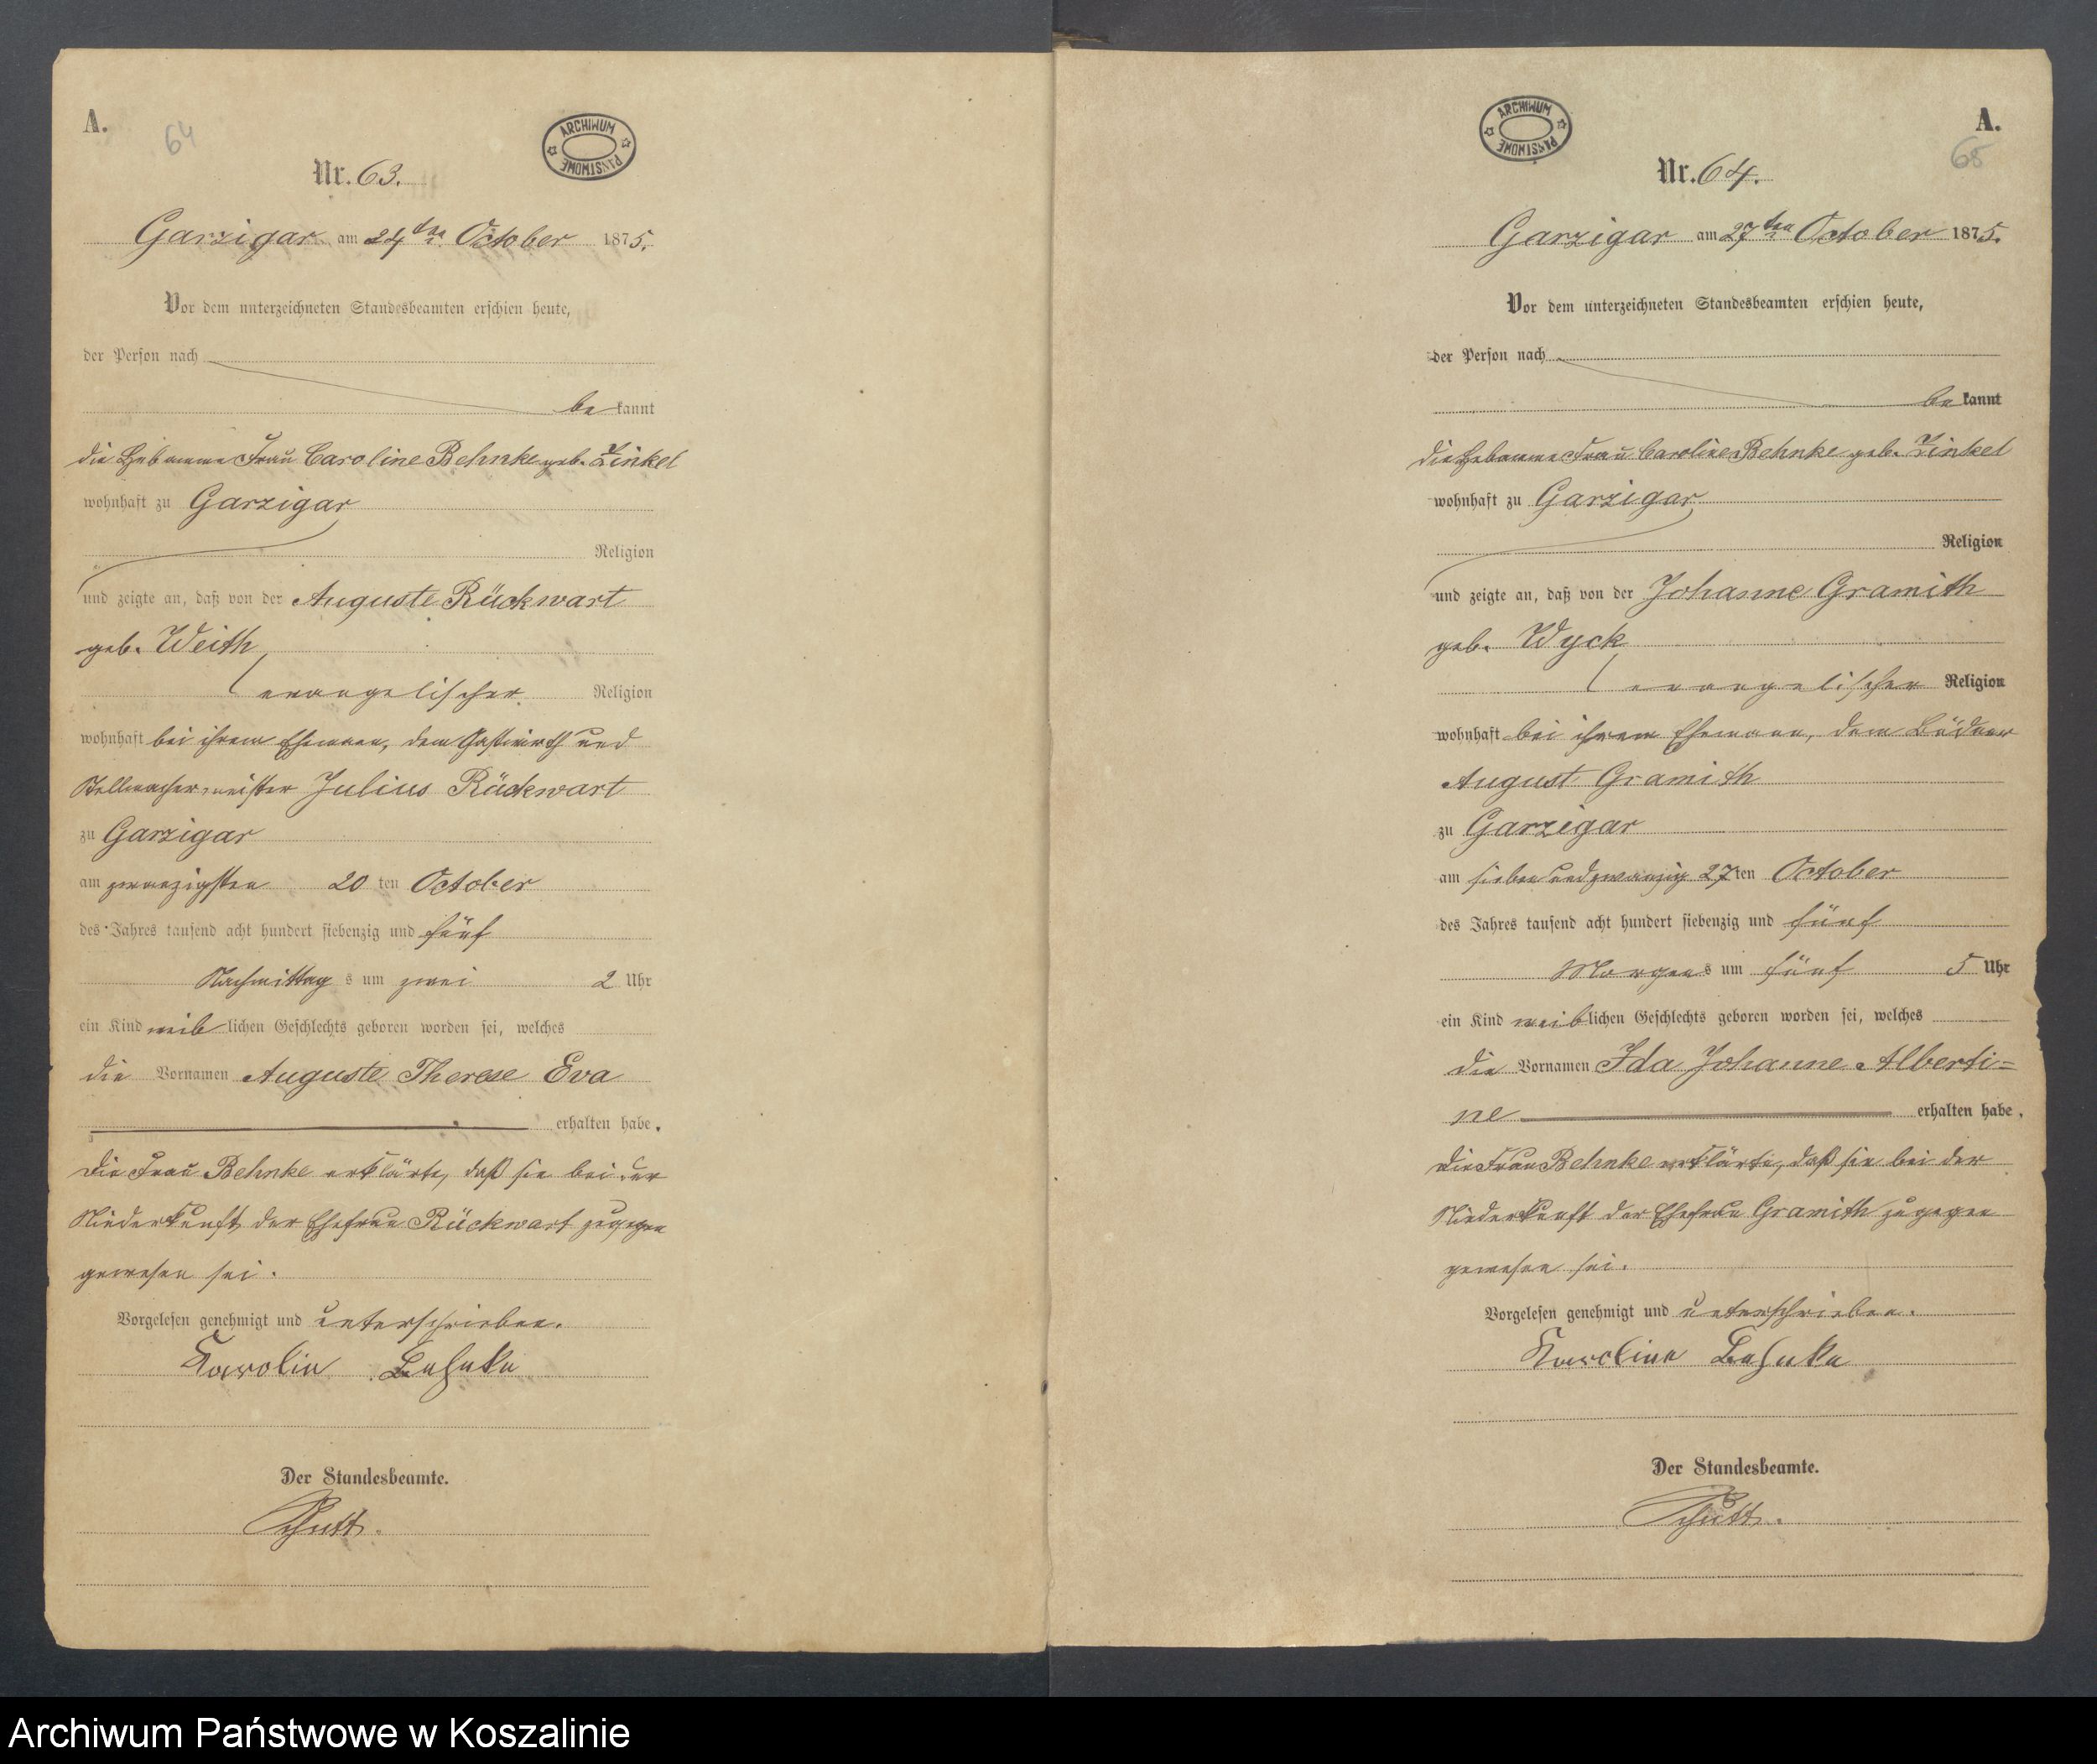 A.
64
ARCHIWUM PAŃSTWOWE
Nr. 63.
Garzigar am 24ten October 1875.
Vor dem unterzeichneten Standesbeamten erschien heute,
der Person nach
bekannt
die Hebamme Frau Caroline Behnke geb. Zinkel
wohnhaft zu Garzigar
Religion
und zeigte an, daß von der Auguste Rückwart
geb. Weith
evangelischer Religion
wohnhaft bei ihrem Ehemann, dem Gastwirth und
Stellmachermeister Julius Rückwart
zu Garzigar
am zwanzigsten 20 ten October
des Jahres tausend acht hundert siebenzig und fünf
Nachmittags um zwei 2 Uhr
ein Kind weiblichen Geschlechts geboren worden sei, welches
die Vornamen Auguste Therese Eva
erhalten habe.
Die Frau Behnke erklärte, daß sie bei der
Niederkunft der Ehefrau Rückwart zugegen
gewesen sei.
Vorgelesen genehmigt und unterschrieben.
Karolin Behnke
Der Standesbeamte.
A.
65
ARCHIWUM PAŃSTWOWE
Nr. 64.
Garzigar am 27ten October 1875.
Vor dem unterzeichneten Standesbeamten erschien heute,
der Person nach
bekannt
die Hebamme Frau Caroline Behnke geb. Zinkel
wohnhaft zu Garzigar
Religion
und zeigte an, daß von der Johanne Gramith
geb. Wyck
evangelischer Religion
wohnhaft bei ihrem Ehemann, dem Büdner
August Gramith
zu Garzigar
am siebenundzwanzig 27ten October
des Jahres tausend acht hundert siebenzig und fünf
Morgens um fünf 5 Uhr
ein Kind weiblichen Geschlechts geboren worden sei, welches
die Vornamen Ida Johanne Alberti=
ne erhalten habe.
Die Frau Behnke erklärte, daß sie bei der
Niederkunft der Ehefrau Gramith zugegen
gewesen sei.
Vorgelesen genehmigt und unterschrieben.
Karoline Behnke
Der Standesbeamte.
Archiwum Państwowe w Koszalinie